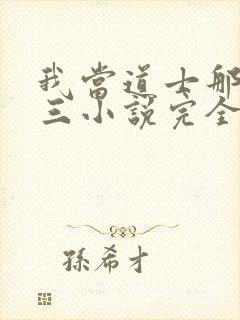 我當道士那
三小說完全
孫希才